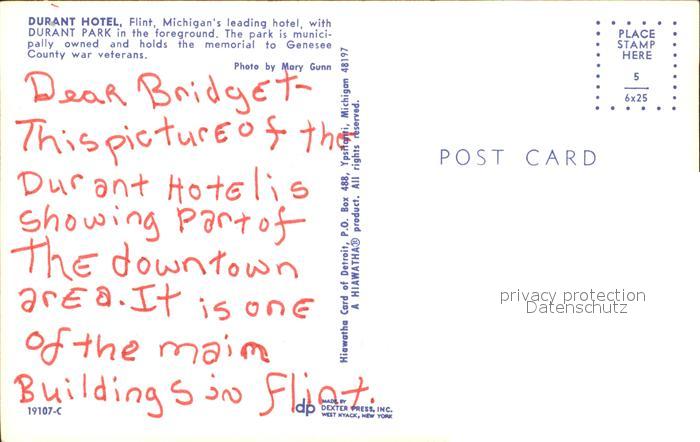 DURANT HOTEL, Flint, Michigan's leading hotel, with
DURANT PARK in the foreground. The park is munici-
pally owned and holds the memorial to Genesee
County war veterans.
Photo by Mary Gunn
Dear Bridget-
This picture of the
Durant Hotel is
showing part of
The downtown
area. It is one
of the maim
Buildings in Flint.
19107-C
Hiawatha Card of Detroit, P.O. Box 488, Ypsilanti, Michigan 48197
A HIAWATHA® product. All rights reserved.
dp
MADE BY
DEXTER PRESS, INC.
WEST NYACK, NEW YORK
PLACE
STAMP
HERE
5
6x25
POST CARD
privacy protection
Datenschutz